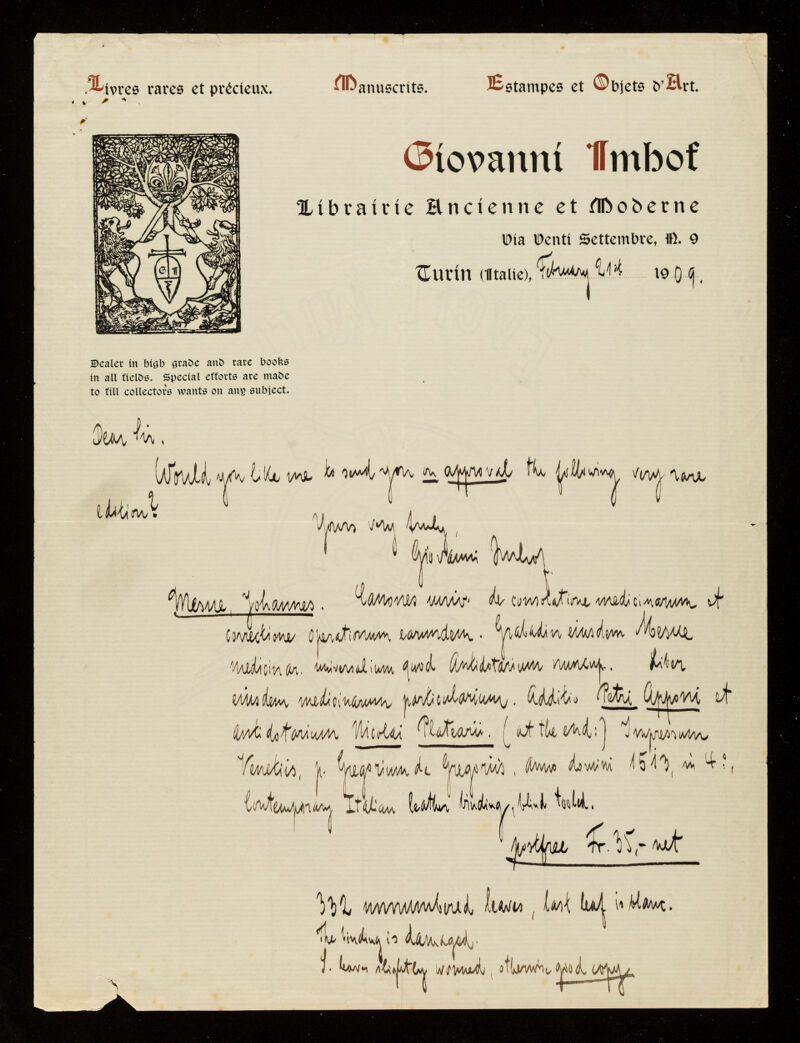 Livres rares et précieux. Manuscrits. Estampes et Objets d'Art.
Giovanni Imhof
Librairie Ancienne et Moderne
Via Venti Settembre, N. 9
Turin (Italie), February 21st 1909.
G I
Dealer in high grade and rare books
in all fields. Special efforts are made
to fill collector's wants on any subject.
Dear Sir.
Would you like me to send you on approval the following very rare
edition?
Yours very truly,
Giovanni Imhof.
Mesue, Johannes. Canones univ. de consolatione medicinarum et
correctione operationum earundem. Grabadin eiusdem Mesue
medicinar. universalium quod Antidotarium nuncup. Liber
eiusdem medicinarum particularium. Additio Petri Apponi et
antidotarium Nicolai Platearii. (at the end:) Impressum
Venetiis, p. Gregorium de Gregoriis, anno domini 1513, in 4º,
Contemporary Italian leather binding, blind tooled.
postfree Fr. 35,- net
332 unnumbered leaves, last leaf is blanc.
The binding is damaged.
S. leaves slightly wormed, otherwise good copy